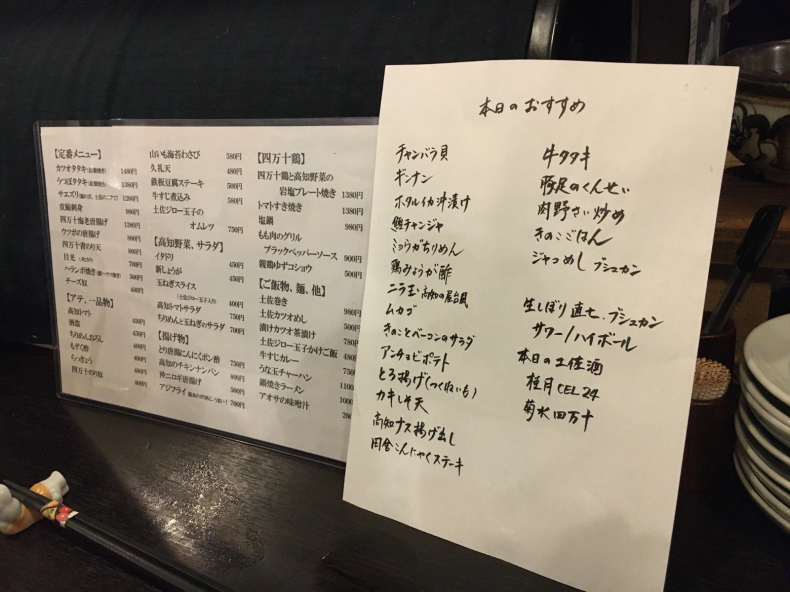 【定番メニュー】
カツオタタキ 1480円
うつぼタタキ 1380円
サエズリ
四万十海老唐揚げ 1380円
ウツボの唐揚げ 800円
四万十青のり天 800円
チーズ奴 480円
【アテ、一品物】
高知トマト
酒盗
ちりめんおろし
もずく酢
らっきょう
四万十のり奴
山いも海苔わさび 580円
久礼天 480円
鉄板豆腐ステーキ 500円
牛すじ煮込み 580円
土佐ジロー玉子の
オムレツ 750円
【高知野菜、サラダ】
イタドリ
新しょうが 450円
玉ねぎスライス 450円
(土佐ジロー玉子入り) 400円
高知トマトサラダ 750円
ちりめんと玉ねぎのサラダ 700円
【揚げ物】
とり唐揚にんにくポン酢 750円
高知のチキンナンバン
沖ニロギ唐揚げ
アジフライ 700円
【四万十鶏】
四万十鶏と高知野菜の
岩塩プレート焼き 1380円
トマトすき焼き 1380円
塩鍋 980円
もも肉のグリル
ブラックペッパーソース 900円
親鶏ゆずコショウ 500円
【ご飯物、麺、他】
土佐巻き 980円
土佐カツオめし 500円
漬けカツオ茶漬け 780円
土佐ジロー玉子かけご飯 480円
牛すじカレー
うな玉チャーハン
鍋焼きラーメン
アオサの味噌汁
本日のおすすめ
チャンバラ貝
ギンナン
ホタルイカ沖漬け
鮭チャンジャ
ミョウガちりめん
鶏みょうが酢
ニラ玉高知の屋台風
ムカゴ
きのことベーコンのサラダ
アンチョビポテト
とろ揚げ(つくねいも)
カキしそ天
高知ナス揚げ出し
田舎こんにゃくステーキ
牛タタキ
豚足のくんせい
肉野さい炒め
きのこごはん
ジャコめし ブシュカン
生しぼり直七、ブシュカン
サワー/ハイボール
本日の土佐酒
桂月CEL24
菊水四万十